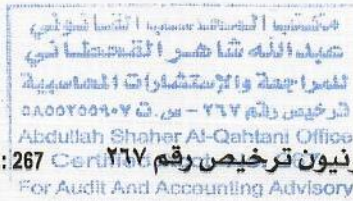 مكتب المحاسب القانوني
عبدالله شاهر القحطاني
للمراجعة والإستشارات المحاسبية
ترخيص رقم ٢٦٧ - س.ت
Abdullah Shaher Al-Qahtani Office
نيون ترخيص رقم ٢٦٧
267 :
For Audit And Accounting Advisory